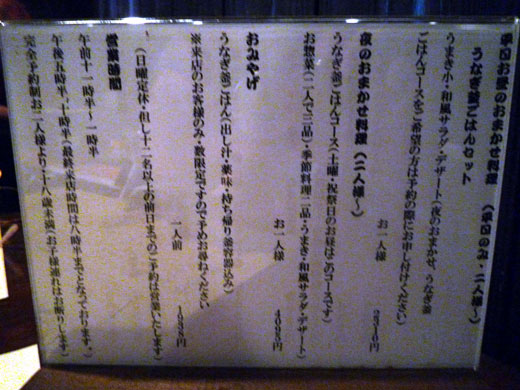 平日お昼のおまかせ料理 (平日のみ・二人様～)
うなぎ釜ごはんセット
うまき小・和風サラダ・デザート(夜のおまかせ、うなぎ釜
ごはんコースをご希望の方は予約の際にお申し付けください)
お一人様
夜のおまかせ料理(二人様～)
うなぎ釜ごはんコース(土曜・祝祭日のお昼はこのコースです)
お惣菜(二人で三品)・季節料理二品・うまき・和風サラダ・デザート)
お一人様 円
おみやげ
うなぎ釜ごはん(出し汁・薬味・持ち帰り釜容器込み)
※来店のお客様のみ・数限定ですので予めお尋ねください
一人前 円
(日曜定休・但し十二名以上の前日までのご予約は営業いたします)
営業時間
午前十一時半～一時半
午後五時半～十時半(最終来店時間は八時半までとなっております。)
完全予約制お二人様より(十八歳未満・お子様連れはお断りします。)